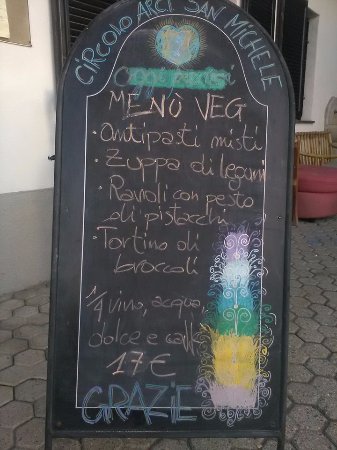 CIRCOLO ARCI SAN MICHELE
MENÙ VEG
• antipasti misti
• Zuppa di legumi
• Ravioli con pesto
di pistacchi
• Tortino di
broccoli
1/4 vino, acqua,
dolce e caffè
17 €
GRAZIE